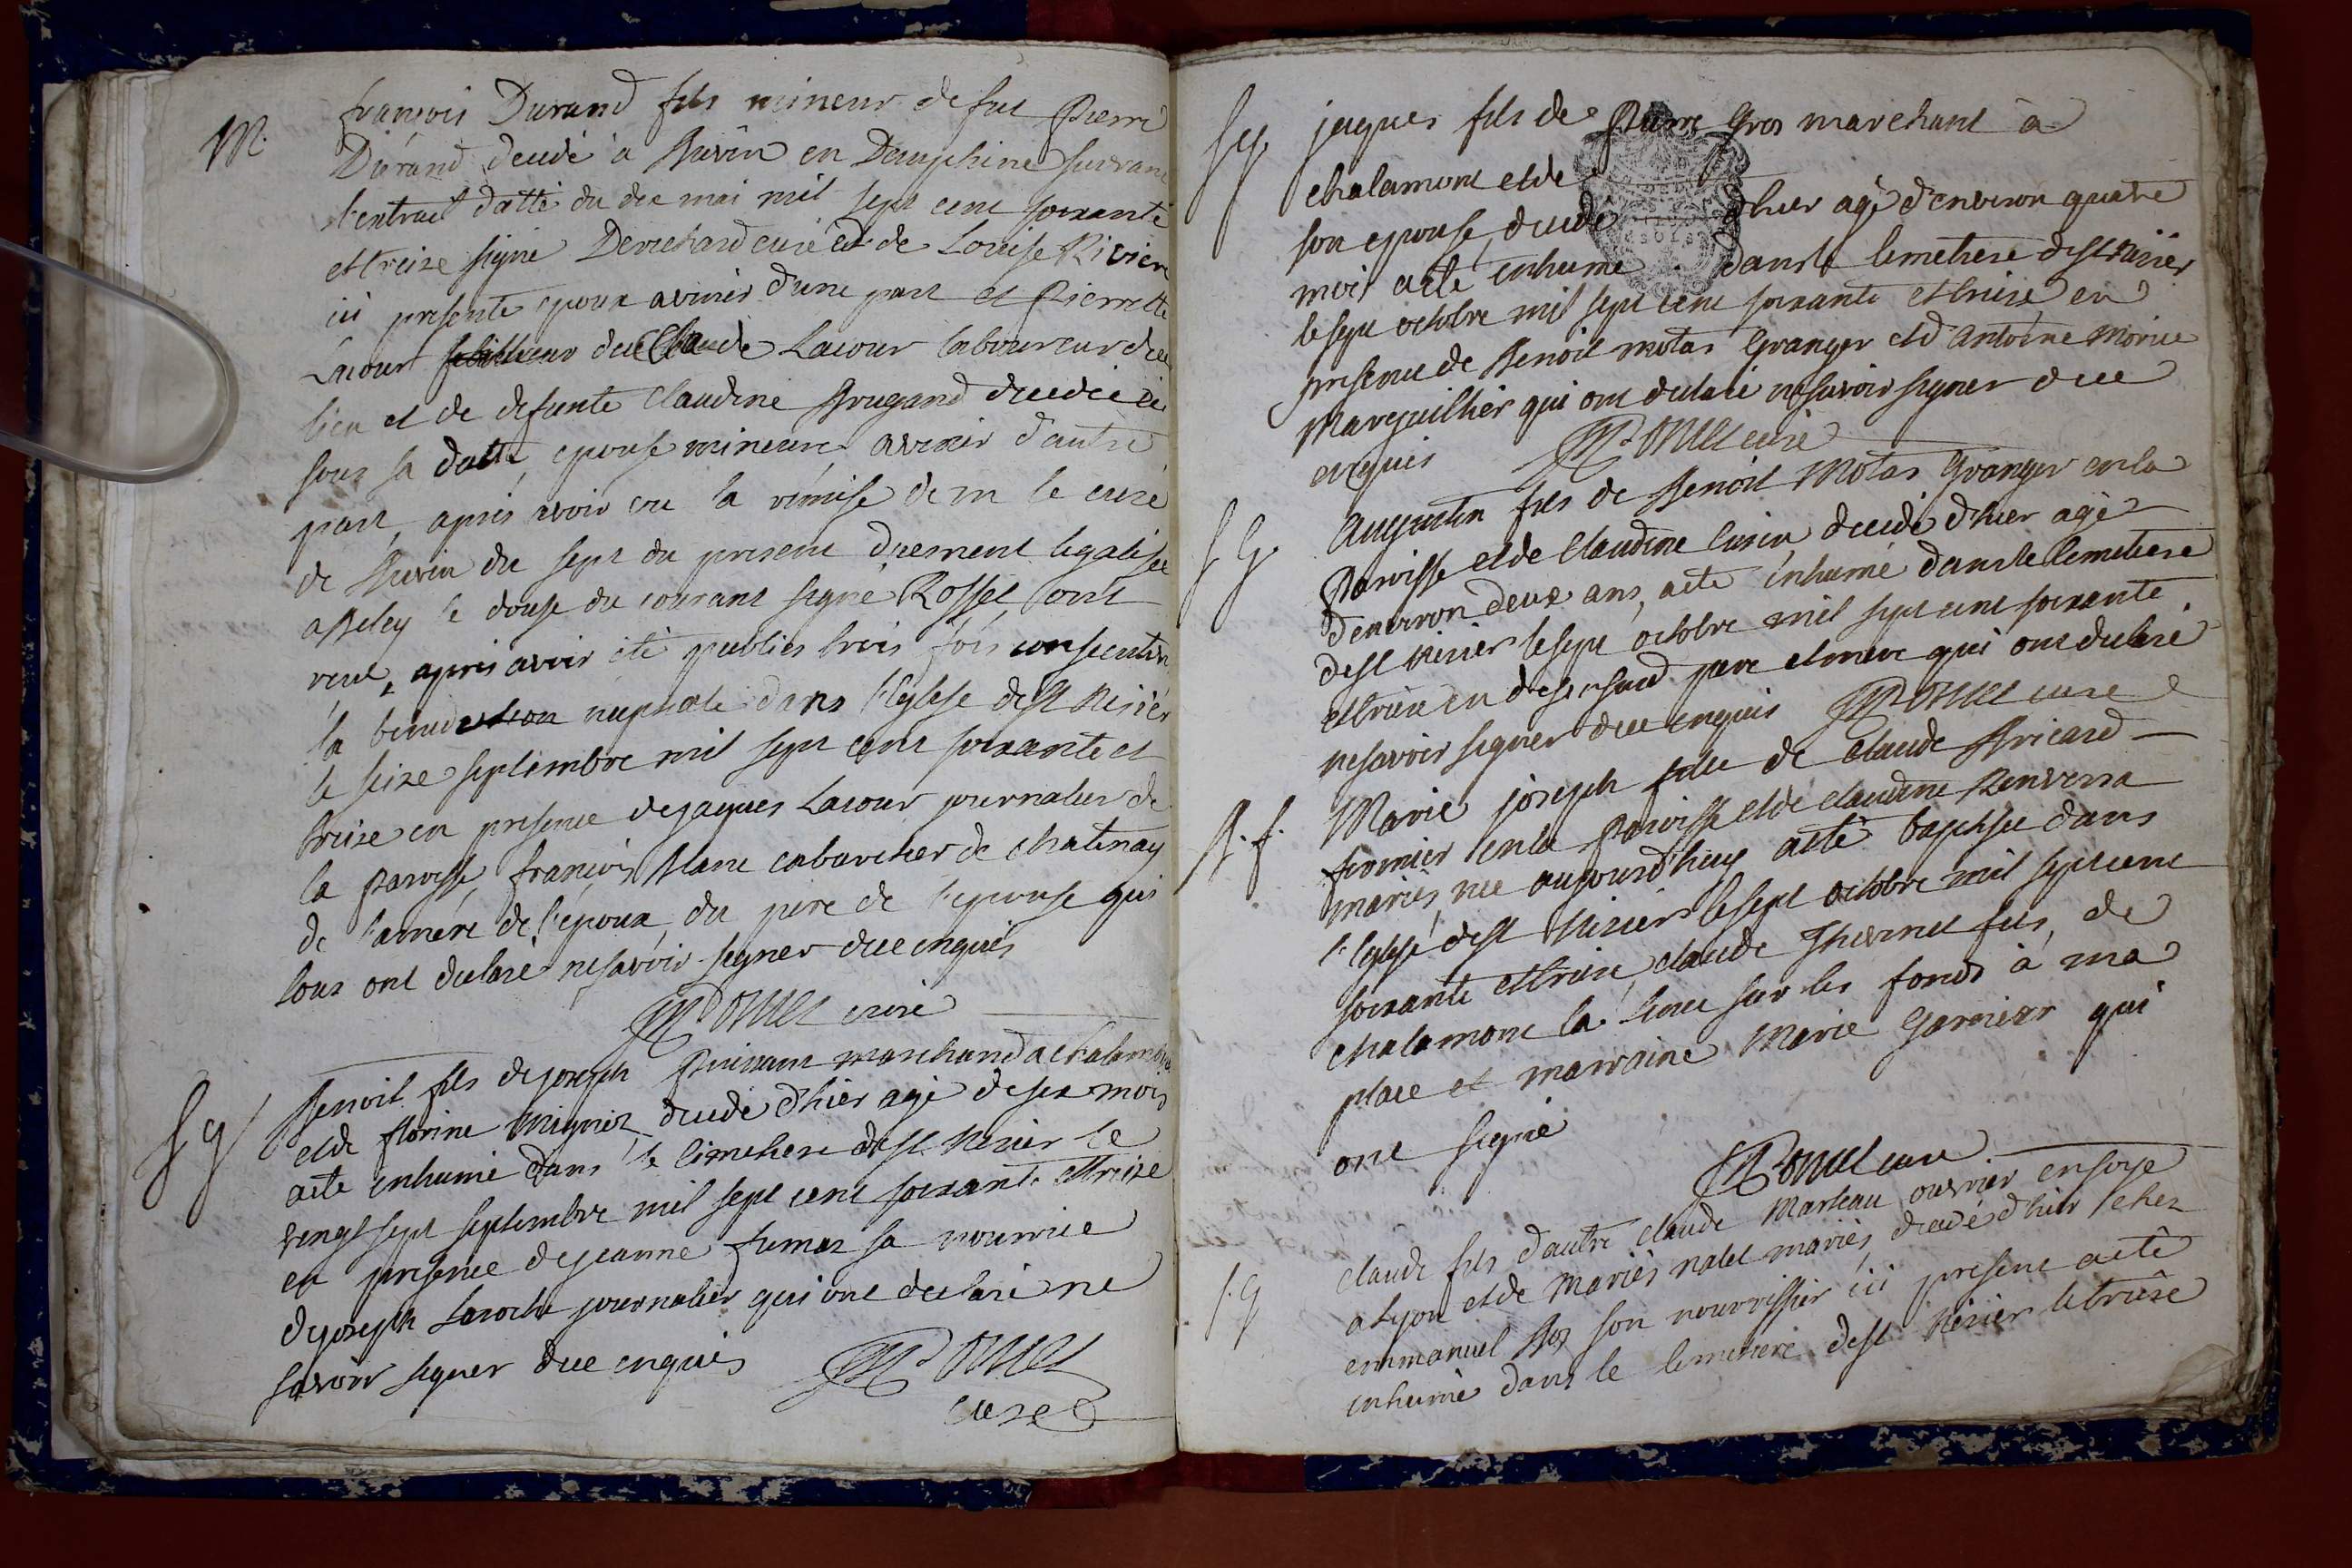 M.
françois Durand fils mineur de fut Pierre
Durand decedé a Ruvin en Dauphine suivant
l'extrait datté du dix mai mil sept cent soixante
et treize signé curé et de Louise Riviere
ici presente epoux avenir d'une part et Pierrette
Lacour du Claude Lacour laboureur du
lieu et de defunte Claudine Brugand decedée ici
sous sa datte, epouse mineure avenir d'autre
part, aprés avoir eu la rémise de m le curé
de Ruvin du sept du present duement legalisée
a Beley le douse du courant signé Rosset ont
recu, aprés avoir été publiés trois fois
la nuptiale dans l'eglise de st Nisier
le seize septembre mil sept cent soixante et
treize en presence de jaques Lacour journalier de
la paroisse françois Blanc cabaretier de chatenay
de la mére de l'époux, du pere de l'epouse qui
tous ont declaré ne savoir signer de ce enquis
curé
f g
Benoit fils de joseph Puissant marchand a chalamont
et de florine Mignier decedé d'hier agé de six mois
a eté enhumé dans le cimetiere de st Nisier le
vingt sept septembre mil sept cent soixante et treize
en presence de jeanne sa nourrice
de joseph Laroche journalier qui ont declaré ne
savoir signer de ce enquis
curé
f g
jaques fils de Pierre Gros marchant à
chalamont et de
son epouse, decedé d'hier agé d'environ quatre
mois a eté enhumé dans le cimetiere de st Nisier
le sept octobre mil sept cent soixante et treize en
presence de Benoit motas Granger et d'Antoine
Marguillier qui ont declaré ne savoir signer de ce
enquis curé
f g
Augustin fils de Benoit Motas Granger en la
Paroisse et de Claudine Cusin decedé d'hier agé
d'environ deux ans, a eté enhumé dans le cimetiere
de st Nisier le sept octobre mil sept cent soixante
et treize en de pere et mere qui ont declaré
ne savoir signer de ce enquis curé
B. f.
Marie joseph fille de Claude Bricard
fermier en la Paroisse et de claudine
mariés, née aujourd'huy a eté baptisée dans
l'eglise de st Nisier le sept octobre mil sept cent
soixante et treize, claude Thevenet fils, de
chalamont la tenue sur les fonds à ma
place et marraine Marie Garnier qui
ont signé
curé
f. g
claude fils d'autre claude Marteau ouvrier en soye
a Lyon et de mariés, decedé d'hier chez
emmanuel son nourrissier ici present a eté
enhumé dans le cimetiere de st Nisier le treise